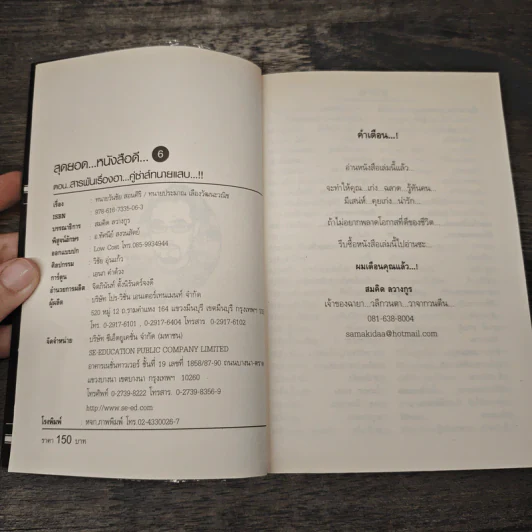 สุดยอด...หนังสือดี... 6
ตอน..สารพันเรื่องฮา...คู่ซ่าส์ทนายแสบ...!!
เรื่อง : ทนายวันชัย สอนศิริ / ทนายประมาณ เลืองวัฒนะวณิช
ISBN : 978-616-7335-06-3
บรรณาธิการ : สมคิด ลวางกูร
พิสูจน์อักษร
ออกแบบปก : Low Cost โทร.085-9934944
ศิลปกรรม : วิชัย
การ์ตูน : เอนก
อำนวยการผลิต
ผู้ผลิต : บริษัท โปร-วิชั่น เอนเตอร์เทนเมนท์ จำกัด
520 หมู่ 12 ถ.รามคำแหง 164 แขวงมีนบุรี เขตมีนบุรี กรุงเทพฯ
โทร. 0-2917-6101 , 0-2917-6404 โทรสาร 0-2917-6102
จัดจำหน่าย : บริษัท ซีเอ็ดยูเคชั่น จำกัด (มหาชน)
SE-EDUCATION PUBLIC COMPANY LIMITED
อาคารเนชั่นทาวเวอร์ ชั้นที่ 19 เลขที่ 1858/87-90 ถนนบางนา-ตราด
แขวงบางนา เขตบางนา กรุงเทพฯ 10260
โทรศัพท์ 0-2739-8222 โทรสาร. 0-2739-8356-9
http://www.se-ed.com
โรงพิมพ์ : หจก.ภาพพิมพ์ โทร.02-4330026-7
ราคา 150 บาท
คำเตือน...!
อ่านหนังสือเล่มนี้แล้ว...
จะทำให้คุณ...เก่ง...ฉลาด...รู้ทันคน...
มีเสน่ห์...คุยเก่ง...น่ารัก...
ถ้าไม่อยากพลาดโอกาสที่ดีของชีวิต...
รีบซื้อหนังสือเล่มนี้ไปอ่านซะ...
ผมเตือนคุณแล้ว...!
สมคิด ลวางกูร
เจ้าของฉายา...วลีกวนตา...วาจากวนตีน...
081-638-8004
samakidaa@hotmail.com